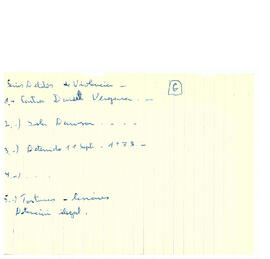 Seis Delitos de Violencia -
G
1.- Contra Daniel Vergara. -
2.-) Isla Dawson . . . .
3.-) Detenido 11 Sept. 1973 -
4.-) . . . .
5.-) Torturas - lesiones
Detención ilegal.